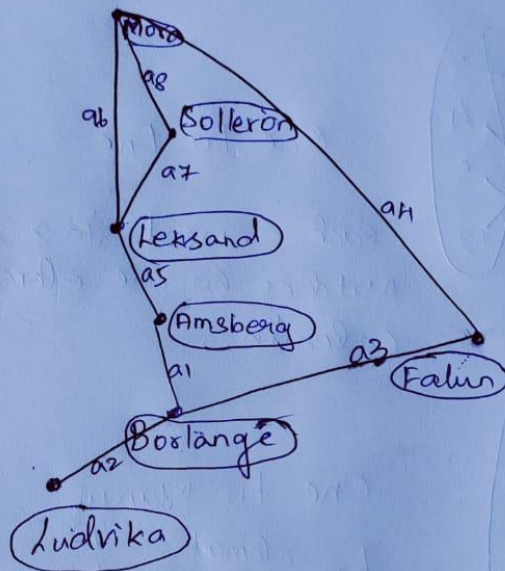 Mora
a8
a6
Sollerön
a7
a4
Leksand
a5
Amsberg
a3
Falun
a1
Borlänge
a2
Ludvika